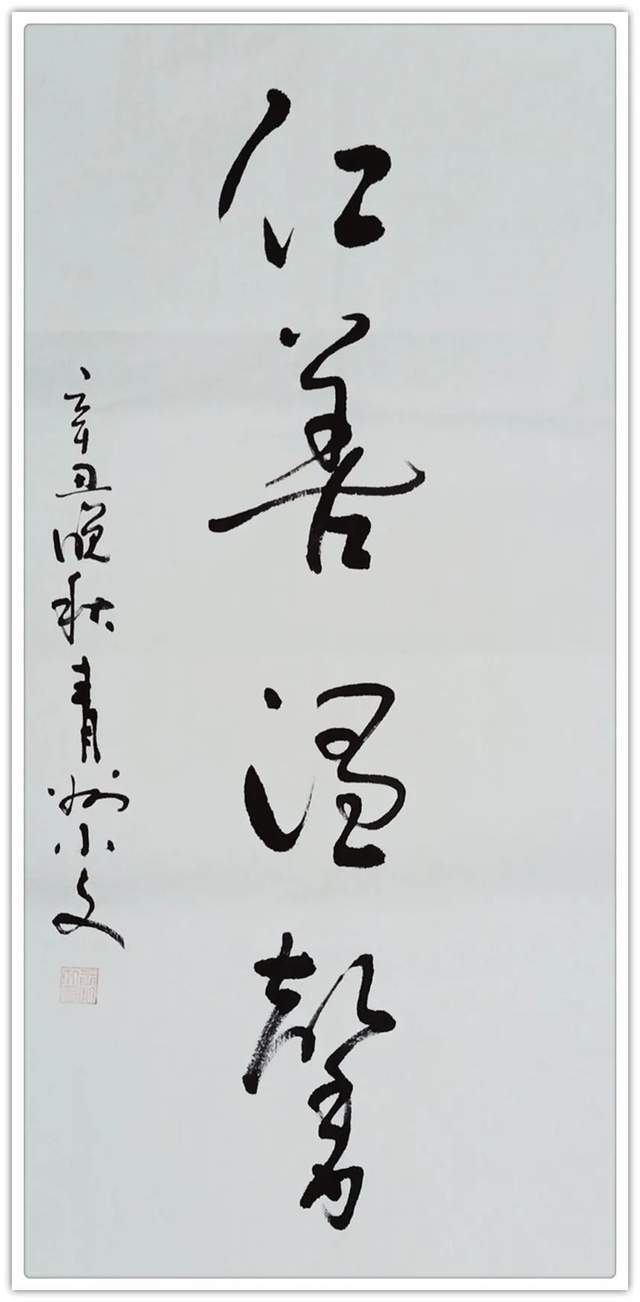 仁善温馨
辛丑晚秋青州小文